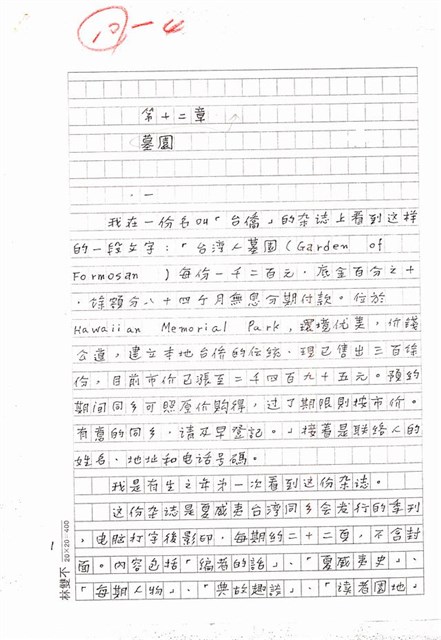 10-4
第十二章
墓園
·一
我在一份名叫「台僑」的杂誌上看到这样
的一段文字：「台湾人墓園(Garden of
Formosan )每份一千二百元．底金百分之十
．餘額分八十四个月無息分期付款。位於
Hawaiian Memorial Park, 環境优美，价錢
公道，建立本地台僑的伝统．現已售出三百餘
份，目前市价已漲至二千四百九十五元。預約
期间同乡可照原价购得，过了期限則按市价。
有意的同乡．请及早登記。」接着是联络人的
姓名．地址和电话号碼。
我是有生之年第一次看到这份杂誌。
这份杂誌是夏威夷台湾同乡会发行的季刊
，电脑打字後影印．每期約二十二頁，不含封
面。内容包括「编者的話」、「夏威夷史」、
「每期人物」、「典故趣談」、「读者園地」
1
林雙不 20×20=400